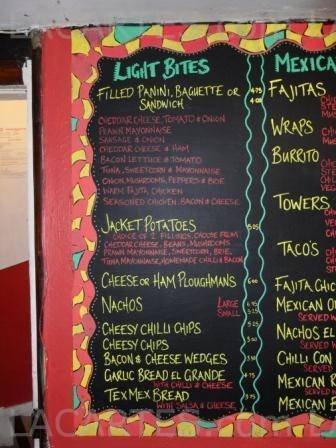 LIGHT BITES
FILLED PANINI, BAGUETTE OR 4.75
SANDWICH 4.00
CHEDDAR CHEESE, TOMATO & ONION
PRAWN MAYONNAISE
SAUSAGE & ONION
CHEDDAR CHEESE & HAM
BACON LETTUCE & TOMATO
TUNA, SWEETCORN & MAYONNAISE
ONION, MUSHROOMS, PEPPERS & BRIE
WARM FAJITA CHICKEN
SEASONED CHICKEN, BACON & CHEESE
JACKET POTATOES 5.25
CHOICE OF 2 FILLINGS, CHOOSE FROM
CHEDDAR CHEESE, BEANS, MUSHROOMS
PRAWN MAYONNAISE, SWEETCORN, BRIE,
TUNA MAYONNAISE, HOMEMADE CHILLI & BACON
CHEESE OR HAM PLOUGHMANS
NACHOS LARGE
SMALL
CHEESY CHILLI CHIPS
CHEESY CHIPS
BACON & CHEESE WEDGES
GARLIC BREAD EL GRANDE
WITH CHILLI & CHEESE
TEX MEX BREAD
WITH SALSA & CHEESE
MEXICA
FAJITAS
WRAPS
BURRITO
TOWERS
TACO'S
FAJITA CHIC
MEXICAN O
SERVED W
NACHOS EL
SERVED
CHILLI CON
SERVED
MEXICAN R
SERVED W
MEXICAN B